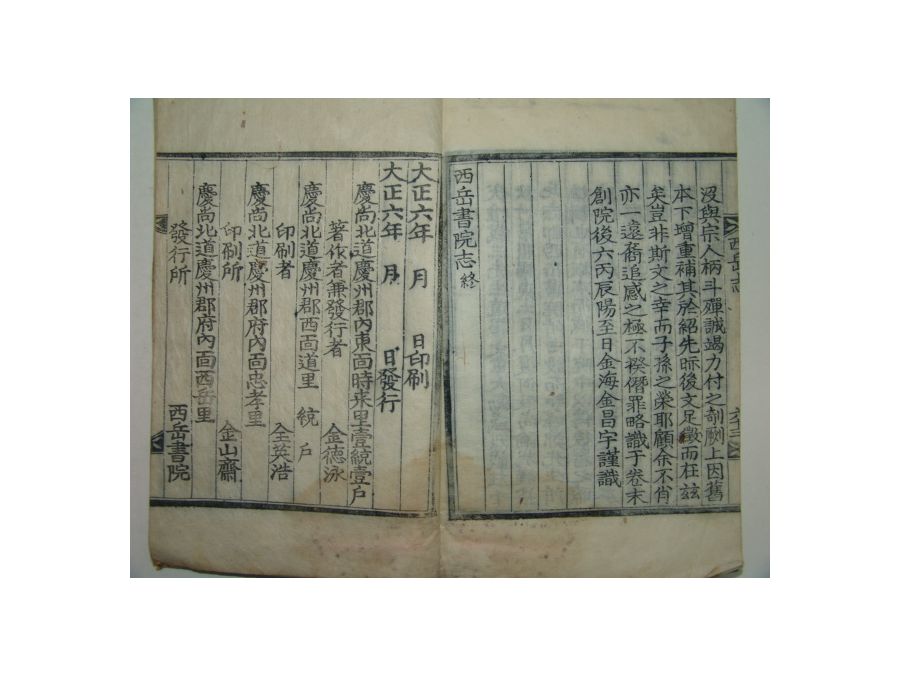 沒與宗人柄斗殫誠竭力付之剞劂上因舊
本下增重補其於紹先眎後文足徵而在玆
矣豈非斯文之幸而子孫之榮耶顧余不肖
亦一遠裔追感之極不揆僭罪略識于卷末
創院後六丙辰陽至日金海金昌宇謹識
西岳書院志終
西岳志
大正六年 月 日印刷
大正六年 月 日發行
慶尚北道慶州郡內東面時來里壹統壹戶
著作者兼發行者 金德泳
慶尚北道慶州郡西面道里 統 戶
印刷者 全英浩
慶尚北道慶州郡府內面忠孝里
印刷所 金山齋
慶尚北道慶州郡府內面西岳里
發行所 西岳書院